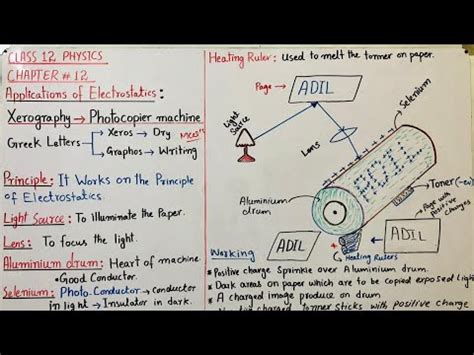 CLASS 12 PHYSICS
CHAPTER # 12
Applications of Electrostatics:
Xerography → Photocopier machine
Greek Letters → Xeros → Dry
→ Graphos → Writing
MCQS"
Principle: It Works on the Principle
of Electrostatics.
Light Source: To illuminate the Paper.
Lens: To focus the light.
Aluminium drum: Heart of machine
•Good Conductor.
Selenium: Photo Conductor → conductor
in light → Insulator in dark.
Heating Ruler: Used to melt the tonner on paper.
Page →
ADIL
Light
Source
Lens
Selenium
ADIL
Aluminium
drum
Toner (-ve)
Page with
positive
Charges
ADIL
ADIL
Heating Rulers
Working
* Positive charge sprinkle over Aluminium drum.
* Dark areas on paper which are to be copied exposed Light
* A charged image produce on drum
charged toner sticks with positive charge